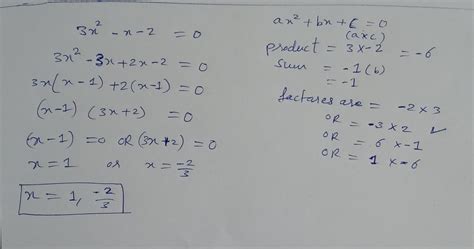 3x² - x - 2 = 0
3x² - 3x + 2x - 2 = 0
3x(x - 1) + 2(x - 1) = 0
(x-1) (3x + 2) = 0
(x - 1) = 0 OR (3x + 2) = 0
x = 1 or x = -2/3
x = 1, -2/3
ax² + bx + c = 0
(a×c)
product = 3 × -2 = -6
sum = -1 (b)
= -1
factares are = -2 × 3
OR = -3 × 2 ✓
OR = 6 × -1
OR = 1 × -6